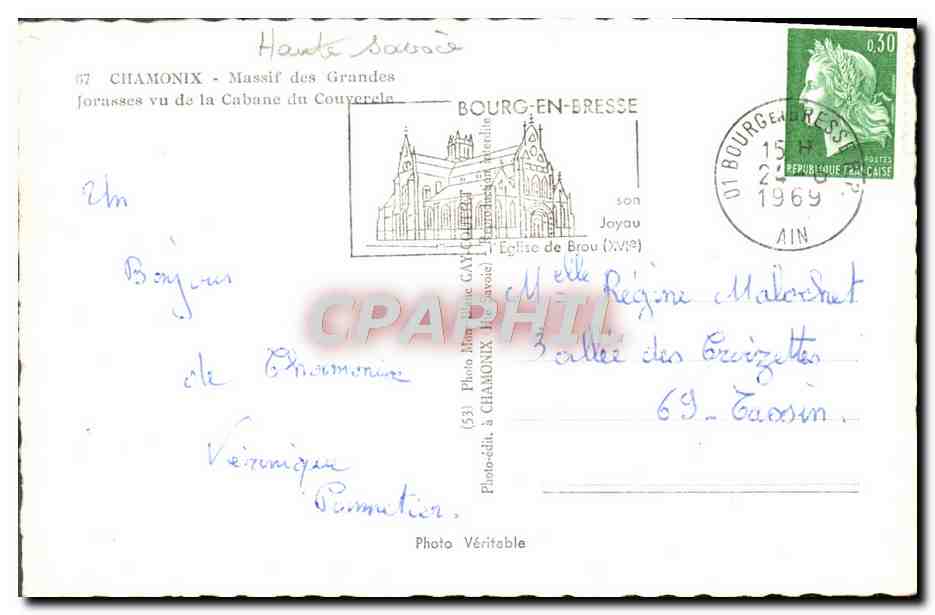 Haute Savoie
67 CHAMONIX - Massif des Grandes
Jorasses vu de la Cabane du Couvercle
BOURG-EN-BRESSE
son
Joyau
l'Eglise de Brou (XVIe)
01 BOURG EN BRESSE R.P.
15 H
24
1969
AIN
0,30
POSTES
REPUBLIQUE FRANÇAISE
Un
Bonjour
de Chamonix
Véronique
Pommetier.
(53) Photo Mont-Blanc GAY-COUTTET
Photo-édit. à CHAMONIX (Hte Savoie) Reproduction interdite
Melle Régine Malochet
3 allée des Croizettes
69 - Tassin.
Photo Véritable
CPAPHIL